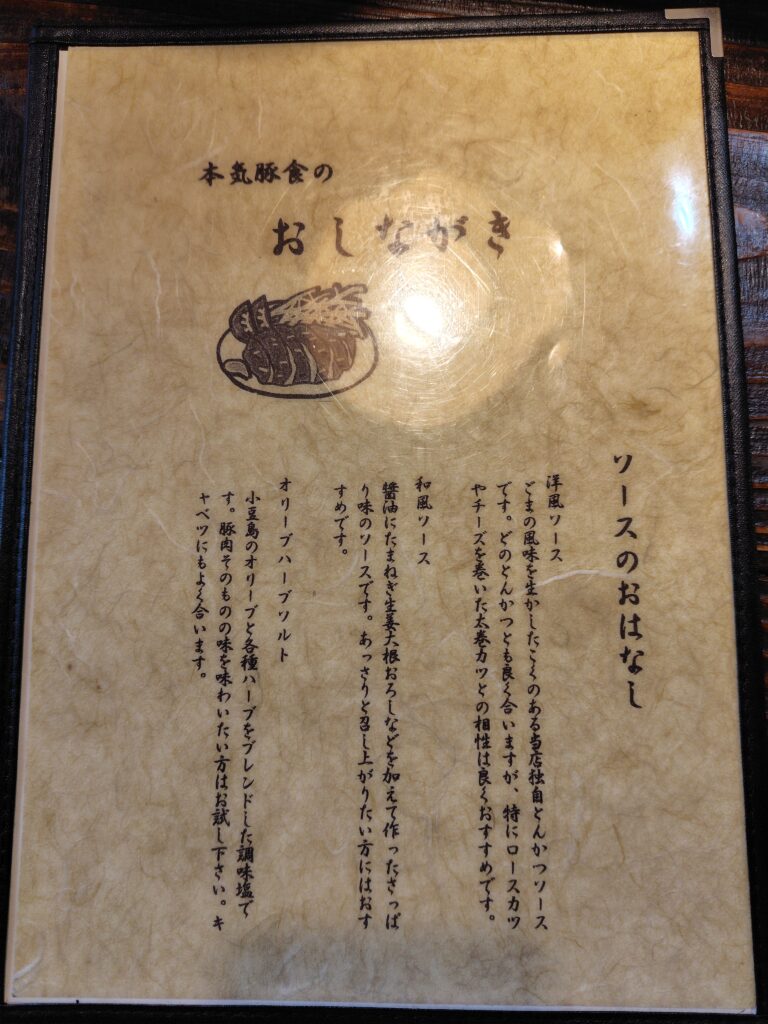 本気豚食の
おしながき
ソースのおはなし
洋風ソース
ごまの風味を生かしたこくのある当店独自とんかつソース
です。どのとんかつとも良く合いますが、特にロースカツ
やチーズを巻いた太巻カツとの相性は良くおすすめです。
和風ソース
醤油にたまねぎ生姜大根おろしなどを加えて作ったさっぱ
り味のソースです。あっさりと召し上がりたい方にはおす
すめです。
オリーブハーブソルト
小豆島のオリーブと各種ハーブをブレンドした調味塩で
す。豚肉そのものの味を味わいたい方はお試し下さい。キ
ャベツにもよく合います。